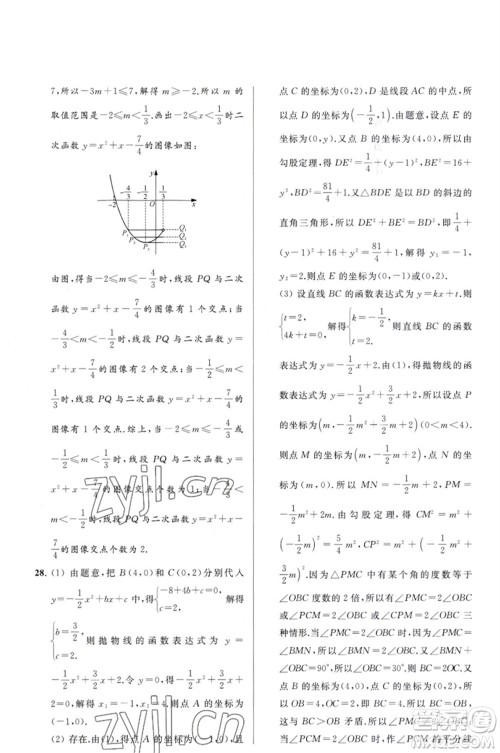 7,所以-3m+1≤7,解得 m≥-2.所以 m 的
取值范围是-2≤m<1/3.画出-2≤m<1/3时二
次函数 y=x²+x-7/4的图像如图:
y
-2 -4/3 -1/2 O 1/3 x
P₁ P₂ P₃ Q₁ Q₂ Q₃
由图,得当-2≤m≤-4/3时,线段 PQ 与二次
函数 y=x²+x-7/4的图像有 1 个交点;当
-4/3<m<-1/2时,线段 PQ 与二次函数 y=
x²+x-7/4的图像有 2 个交点;当-1/2≤m<
1/3时,线段 PQ 与二次函数 y=x²+x-7/4的图
像有 1 个交点.综上,当-2≤m≤-4/3或
-1/2≤m<1/3时,线段 PQ 与二次函数 y=
x²+x-7/4的图像交点个数为 1;当-4/3<m
<-1/2时,线段 PQ 与二次函数 y=x²+x-7/4
的图像交点个数为 2.
28. (1) 由题意,把 B(4,0)和 C(0,2)分别代入
y=-1/2x²+bx+c,得{-8+4b+c=0, c=2, 解得
{b=3/2, c=2, 则抛物线的函数表达式为 y=
-1/2x²+3/2x+2.令 y=-1/2x²+3/2x+2=
0,解得 x₁=-1,x₂=4.则点 A 的坐标为
(-1,0). (2) 存在 由(1),得 A(-1,0),且
点 C 的坐标为(0,2),D 是线段 AC 的中点,所
以点 D 的坐标为(-1/2,1).由题意,设点 E 的
坐标为(0,y).又点 B 的坐标为(4,0),所以由
勾股定理,得 DE²=1/4+(y-1)²,BE²=16+
y²,BD²=81/4+1.又△BDE 是以 BD 的斜边的
直角三角形,所以由勾股定理,得1/4+(y-1)²
+16+y²=81/4+1,解得 y₁=-1,y₂=
2.则点 E 的坐标为(0,-1)或(0,2).
(3) 设直线 BC 的函数表达式为 y=kx+t.则
{t=2, 4k+t=0, 解得{k=-1/2, t=2. 则直线 BC 的函数
表达式为 y=-1/2x+2.由(1),得抛物线的函
数表达式为 y=-1/2x²+3/2x+2,所以设点 P
的坐标为(m,-1/2m²+3/2m+2)(0<m<4).
则点 M 的坐标为(m,-1/2m+2),点 N 的坐标
为(m,2).所以 MN=2-(-1/2m+2)=1/2m,
CN=m.由勾股定理,得 CM²=m²+
(-1/2m)²=5/4m²,CP²=m²+
(-1/2m²+3/2m)².因为△PCM 中有某个角的
度数等于∠OBC 度数的 2 倍,所以有∠PMC=
2∠OBC 或∠PCM=2∠OBC 或∠CPM=2∠OBC
三种情形.当∠PMC=2∠OBC 时,又∠PMC=
∠OCB,所以∠OCB=2∠OBC.又∠OCB+
∠OBC=90°,所以∠OBC=30°,则可求得
OB=4≠2√3,所以∠PMC=2∠OBC 不成立;当
∠PCM=2∠OBC 时,可作∠PCM 的平分线
zyjl.cn
zyjl.cn